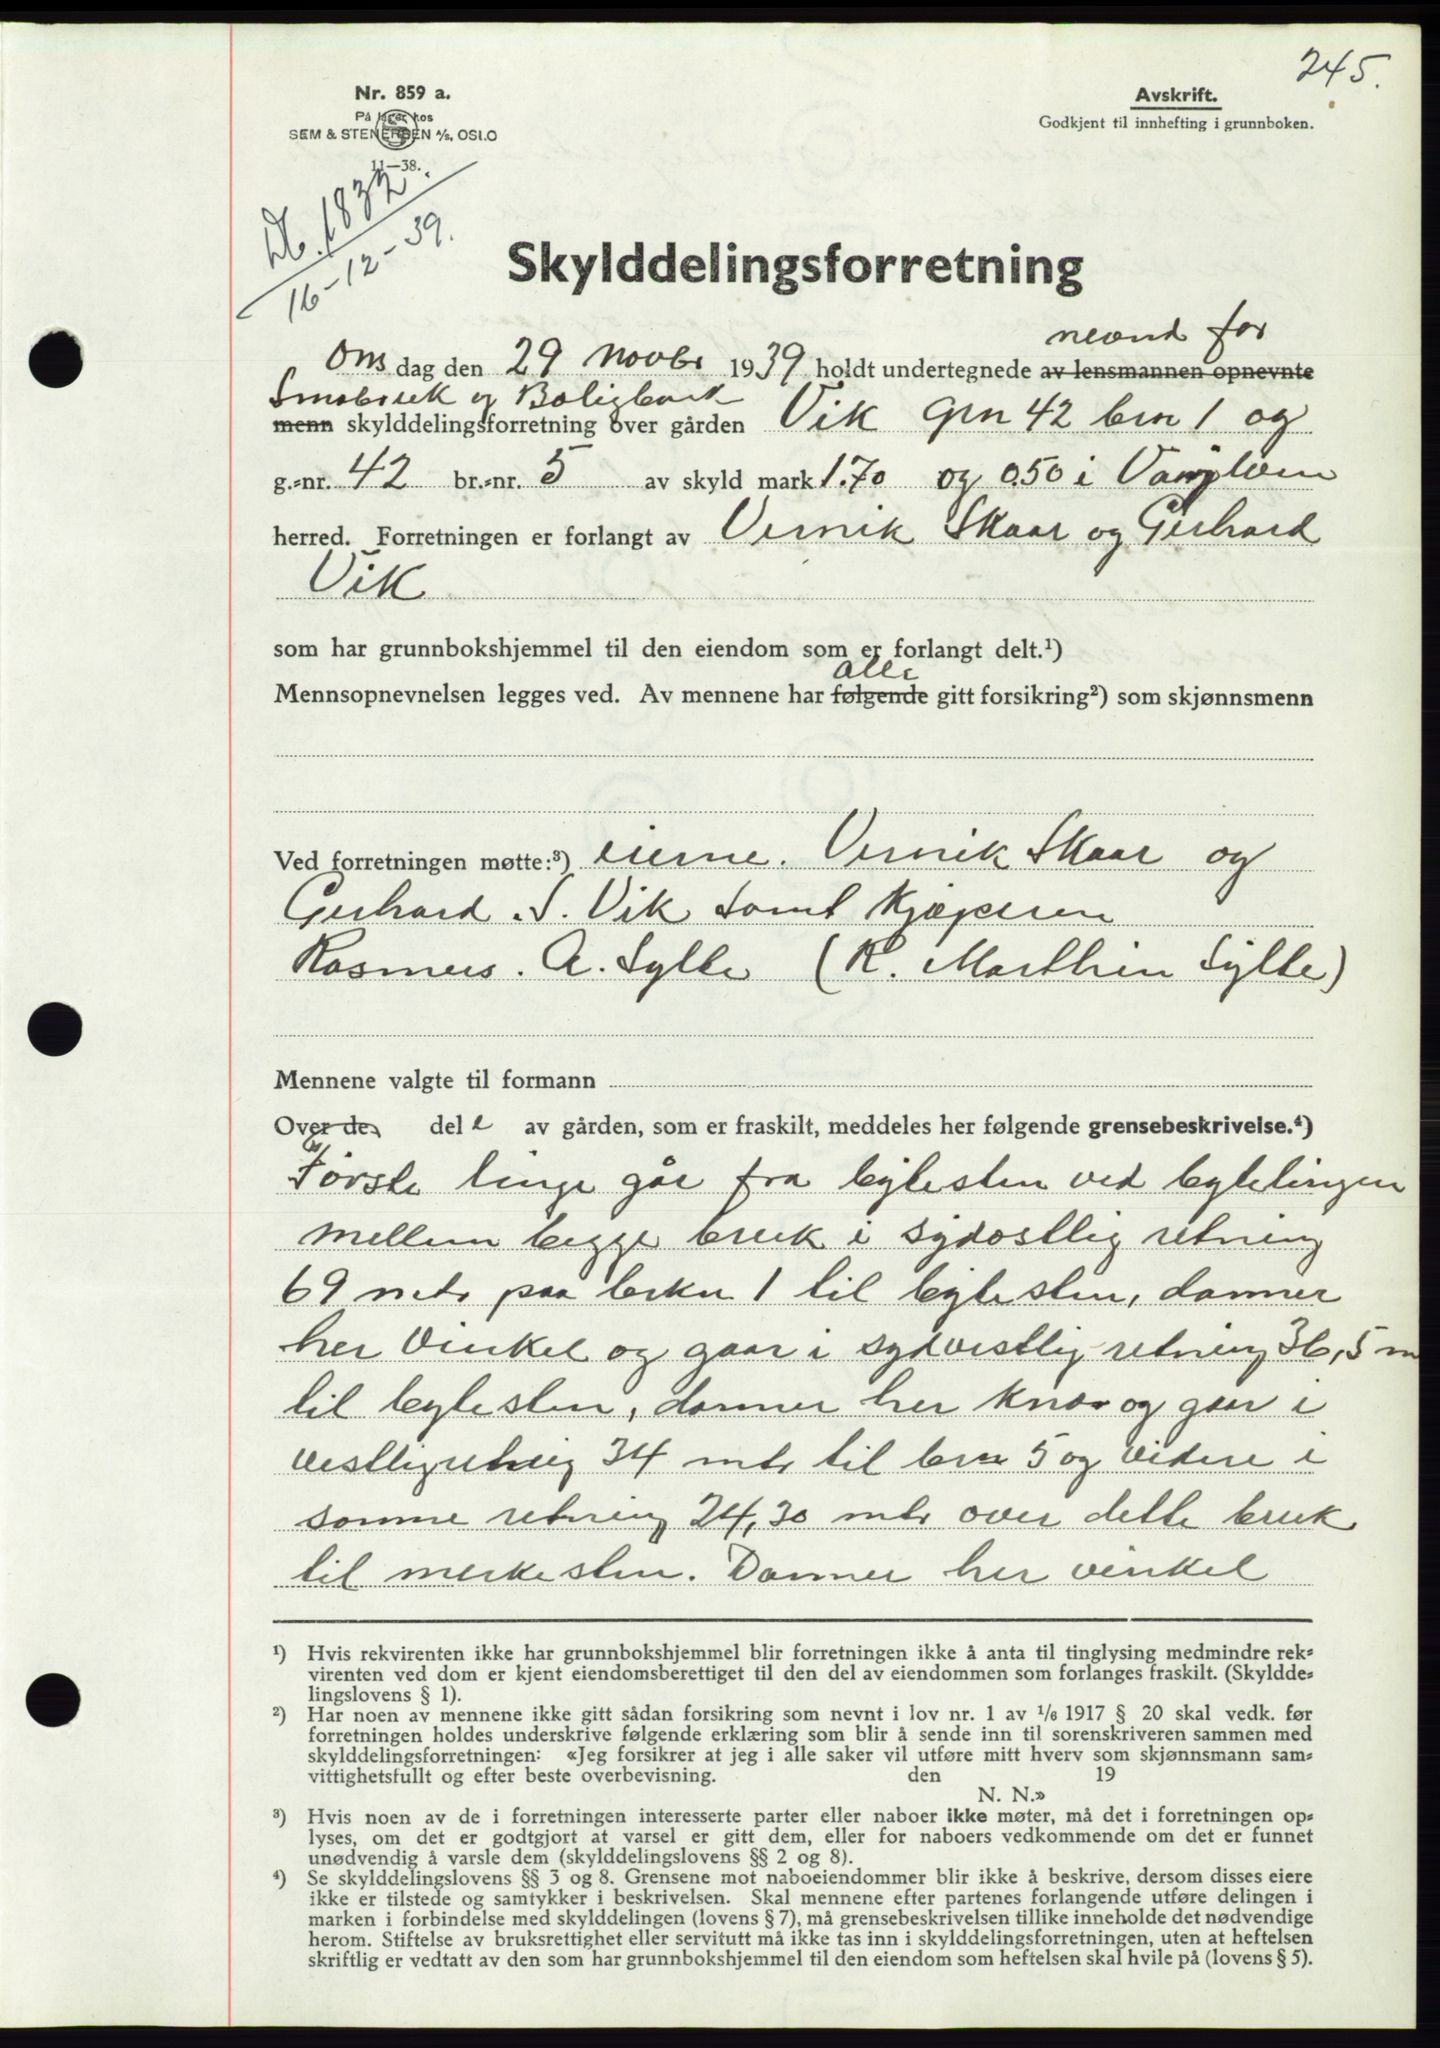 245.
Nr. 859 a.
På lager hos
SEM & STENERSEN A/S, OSLO
11—38.
Avskrift.
Godkjent til innhefting i grunnboken.
Db. 1832
16-12-39.
Skylddelingsforretning
nevnd for
Onsdag den 29 novbr 1939 holdt undertegnede av lensmannen opnevnte
Smabruk og Boligbruk
menn skylddelingsforretning over gården Vik grn 42 brn 1 og
g.=nr. 42 br.=nr. 5 av skyld mark 1.70 og 0.50 i Vanylven
herred. Forretningen er forlangt av Vernik Skaar og Gerhard
Vik
som har grunnbokshjemmel til den eiendom som er forlangt delt.¹)
alle
Mennsopnevnelsen legges ved. Av mennene har følgende gitt forsikring²) som skjønnsmenn
Ved forretningen møtte:³) eierne. Vernik Skaar og
Gerhard. S. Vik samt kjøperen
Rasmus. A. Sylte (R. Marthin Sylte)
Mennene valgte til formann
Over de del e av gården, som er fraskilt, meddeles her følgende grensebeskrivelse.⁴)
Første linje går fra bytesten ved bytelinjen
mellem begge bruk i sydostlig retning
69 mtr paa brkn 1 til bytesten, danner
her vinkel og gaar i sydvestlig retning 36,5 m
til bytesten, danner her knær og gaar i
vestlig retning 34 mtr til brn 5 og videre i
samme retning 24,30 mtr over dette bruk
til merkesten. Danner her vinkel
¹) Hvis rekvirenten ikke har grunnbokshjemmel blir forretningen ikke å anta til tinglysing medmindre rek=
virenten ved dom er kjent eiendomsberettiget til den del av eiendommen som forlanges fraskilt. (Skyldde=
lingslovens § 1).
²) Har noen av mennene ikke gitt sådan forsikring som nevnt i lov nr. 1 av 1/6 1917 § 20 skal vedk. før
forretningen holdes underskrive følgende erklæring som blir å sende inn til sorenskriveren sammen med
skylddelingsforretningen: «Jeg forsikrer at jeg i alle saker vil utføre mitt hverv som skjønnsmann sam=
vittighetsfullt og efter beste overbevisning. den 19
N. N.»
³) Hvis noen av de i forretningen interesserte parter eller naboer ikke møter, må det i forretningen op=
lyses, om det er godtgjort at varsel er gitt dem, eller for naboers vedkommende om det er funnet
unødvendig å varsle dem (skylddelingslovens §§ 2 og 8).
⁴) Se skylddelingslovens §§ 3 og 8. Grensene mot naboeiendommer blir ikke å beskrive, dersom disses eiere
ikke er tilstede og samtykker i beskrivelsen. Skal mennene efter partenes forlangende utføre delingen i
marken i forbindelse med skylddelingen (lovens § 7), må grensebeskrivelsen tillike inneholde det nødvendige
herom. Stiftelse av bruksrettighet eller servitutt må ikke tas inn i skylddelingsforretningen, uten at heftelsen
skriftlig er vedtatt av den som har grunnbokshjemmel til den eiendom som heftelsen skal hvile på (lovens § 5).